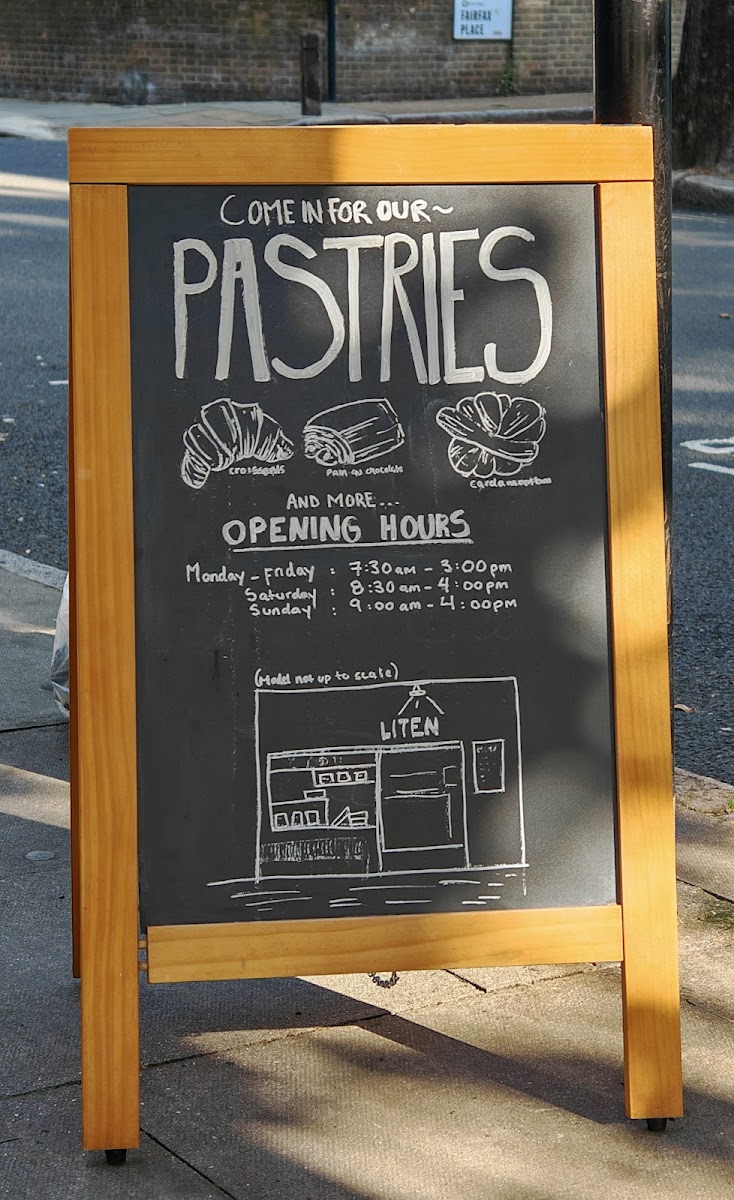 FAIRFAX
PLACE
COME IN FOR OUR~
PASTRIES
croissants
Pain au chocolate
Cardamom bun
AND MORE...
OPENING HOURS
Monday - Friday : 7:30 am - 3:00 pm
Saturday : 8:30 am - 4:00 pm
Sunday : 9:00 am - 4:00 pm
(Model not up to scale)
LITEN